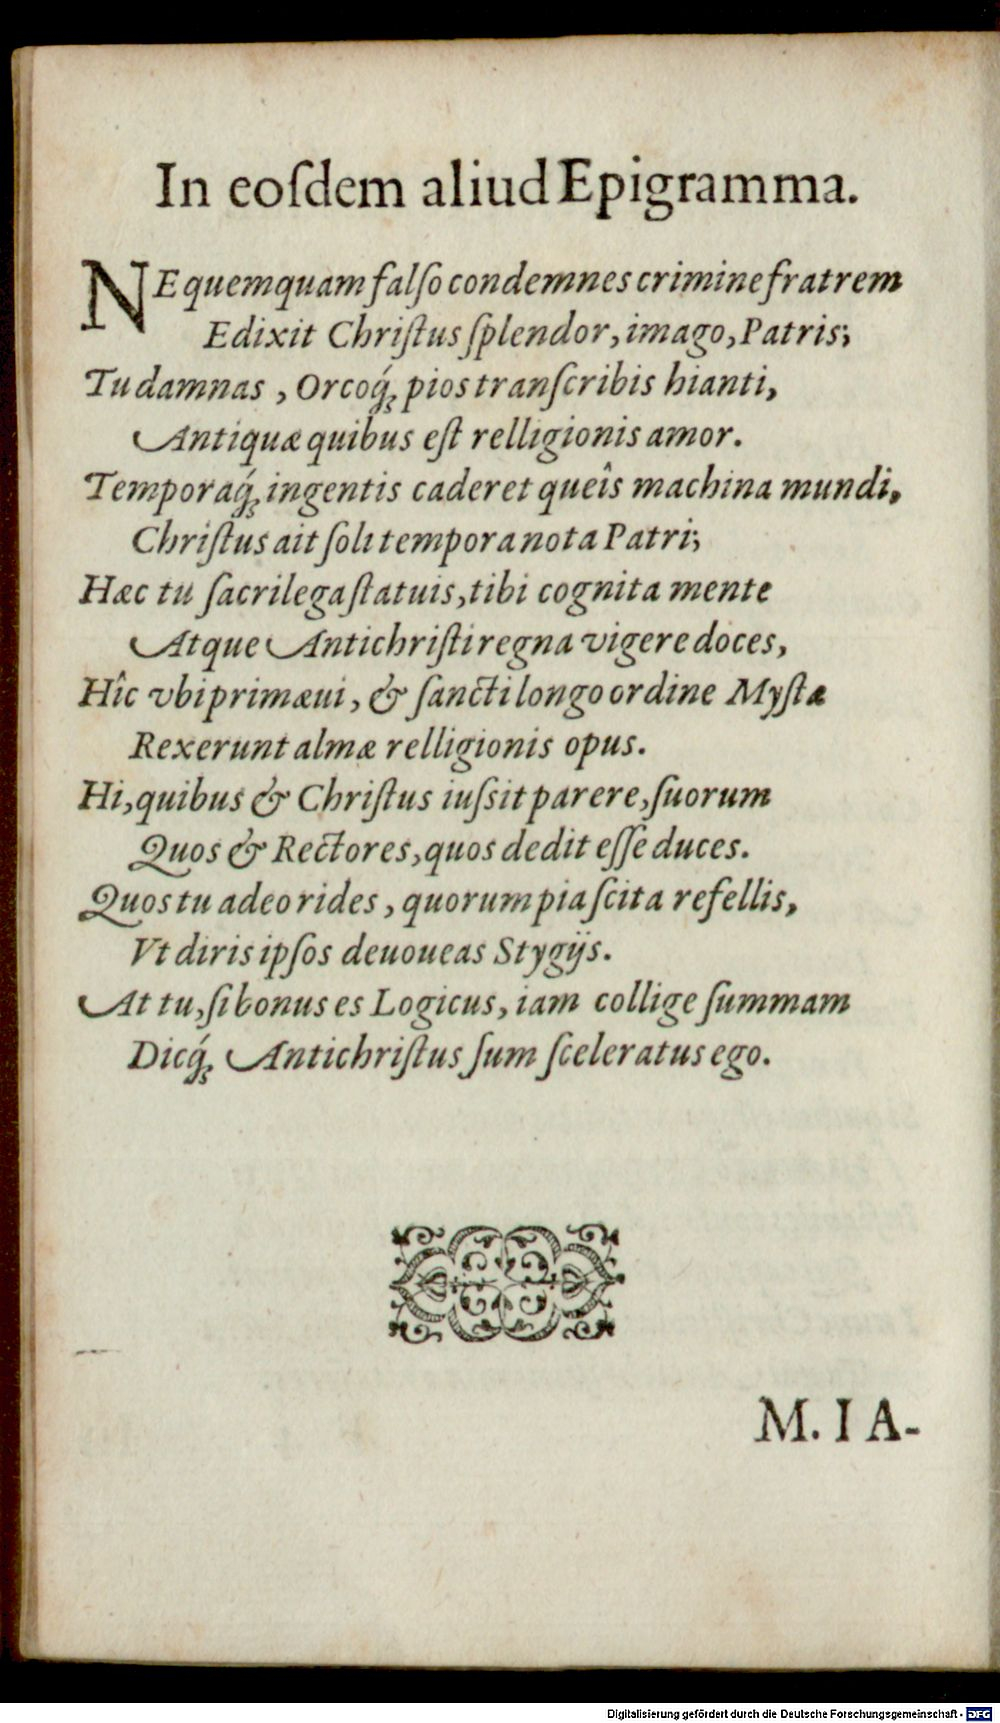 In eoſdem aliud Epigramma.
NE quemquam falſo condemnes crimine fratrem
Edixit Chriſtus ſplendor, imago, Patris;
Tu damnas, Orcoq́; pios tranſcribis hianti,
Antiquæ quibus eſt relligionis amor.
Temporaq́; ingentis caderet queîs machina mundi,
Chriſtus ait ſoli tempora nota Patri;
Hæc tu ſacrilega ſtatuis, tibi cognita mente
Atque Antichriſti regna vigere doces,
Hîc vbi primæui, & ſancti longo ordine Myſtæ
Rexerunt almæ relligionis opus.
Hi, quibus & Chriſtus iuſsit parere, ſuorum
Quos & Rectores, quos dedit eſſe duces.
Quos tu adeo rides, quorum pia ſcita refellis,
Vt diris ipſos deuoueas Stygijs.
At tu, ſi bonus es Logicus, iam collige ſummam
Dicq́; Antichriſtus ſum ſceleratus ego.
M. IA-
Digitalisierung gefördert durch die Deutsche Forschungsgemeinschaft - DFG